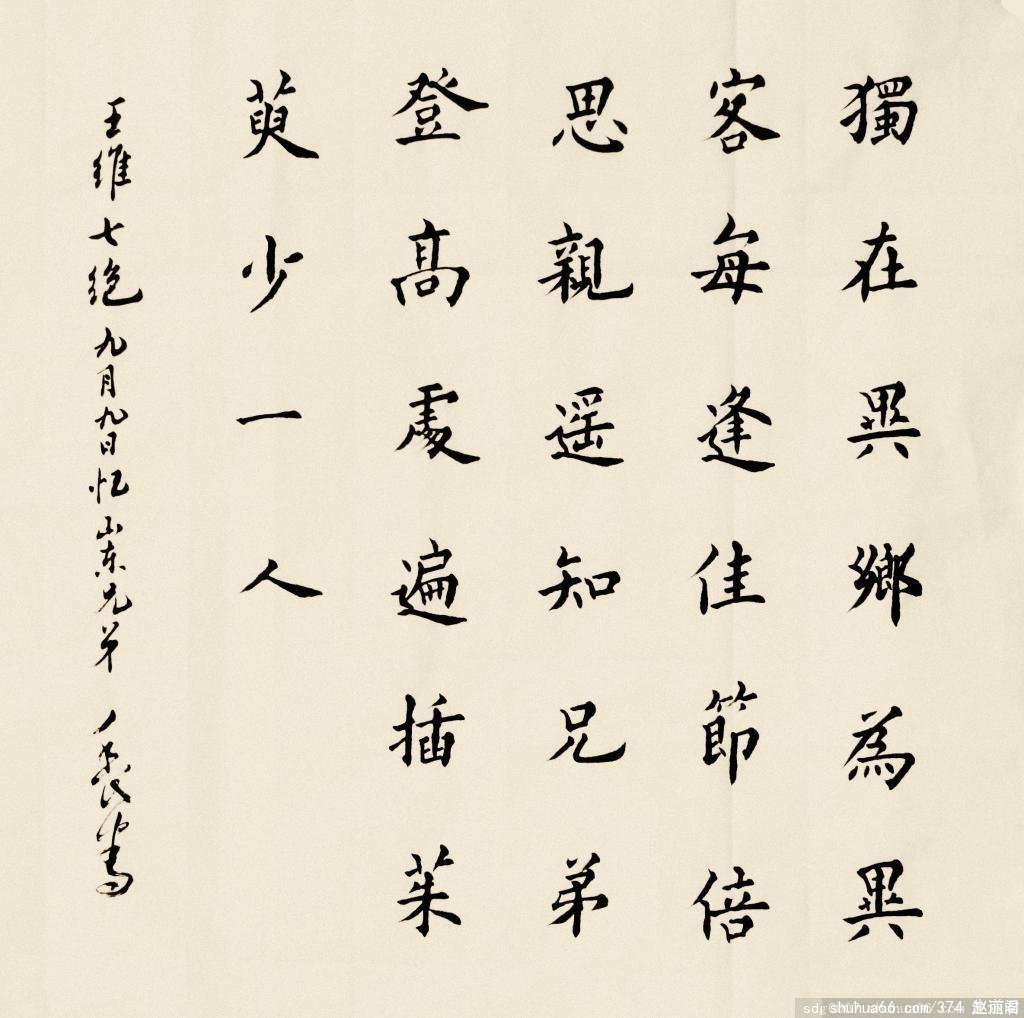 獨在異鄉為異
客每逢佳節倍
思親遥知兄弟
登高處遍插茱
萸少一人
王维七绝九月九日忆山东兄弟
shuhua66 com/374 赵道君